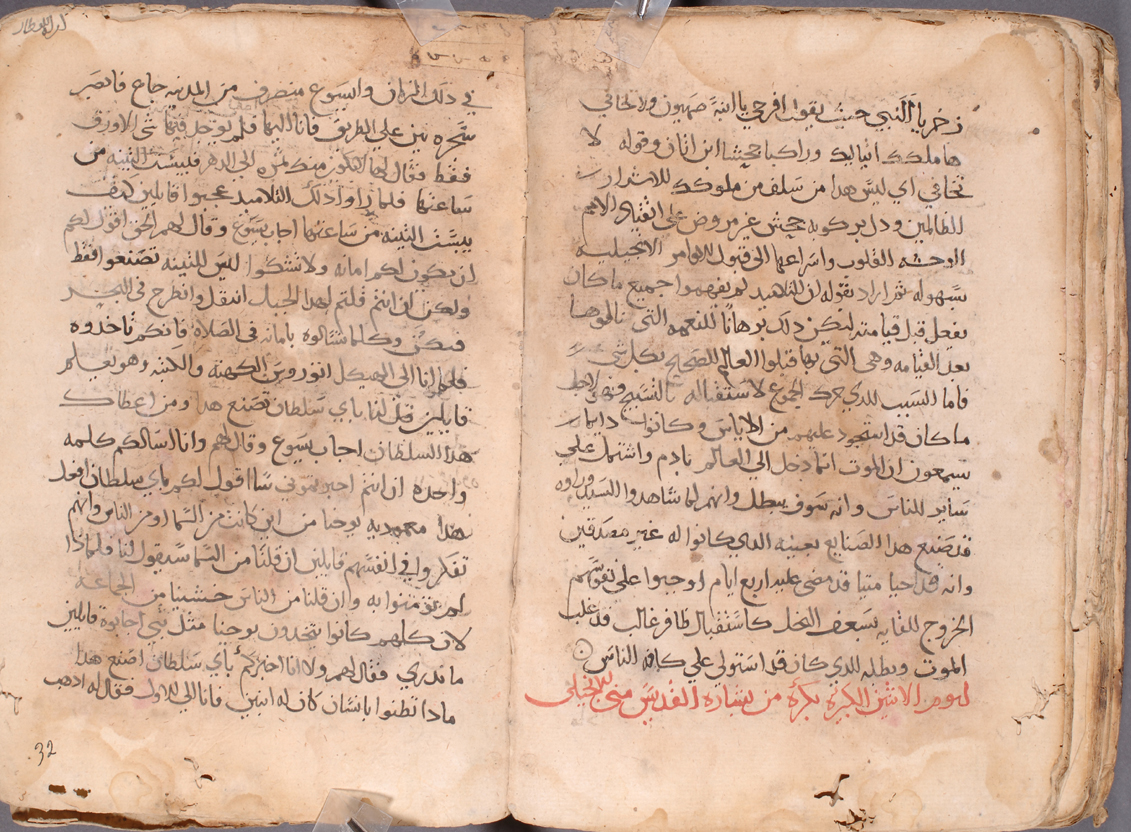 زخريا النبي حيث يقول افرحي يا ابنة صهيون ولا تخافي
ها ملكك اتيا لك وراكبا جحشا ابن اتان وقوله لا
تخافي اي ليس هذا من سلف من ملوكك
الظالمين ودل بركوبه جحش غير مروض على انقياد الامم
القلوب واسراعها الى قبول الاوامر الانجيليه
بسهوله ثم اراد بقوله ان التلاميد لم يفهموا جميع ما كان
يفعل قبل قيامته ليكن دلك برهانا للنعمه التي نالوها
بعد القيامه وهي التي بها قبلوا العالم بكل شي
فاما السبب الدي حرك الجموع لاستقباله بالتسبيح فهو لاجل
ما كان قد استحود عليهم من الاياس وكانوا دايما
يسمعون ان الموت انما دخل الى العالم بادم واشتمل على
ساير الناس وانه سوف يبطل وانهم لما شاهدوا السيد
قد صنع هدا الصنايع بعينه الدي كانوا له غير مصدقين
وانه قد احيا ميتا قد مضى عليه اربع ايام اوجبوا على نفوسهم
الخروج للقايه بسعف النخل كاستقبال ظافر غالب قد غلب
الموت وبطله الدي كان قد استولى على كافة الناس
ليوم الاثنين الكبيره بكره من بشارة القديس متى الانجيلي
في دلك الزمان وايسوع منصرف من المدينه جاع فابصر
شجرة تين على الطريق فاتا اليها فلم يوجد فيها شي الا ورق
فقط فقال لها لا تكون منك ثمره الى الدهر فيبست التينه من
ساعتها فلما راوا دلك التلاميد عجبوا قايلين كيف
يبست التينه من ساعتها اجاب يسوع وقال لهم الحق اقول لكم
ان يكون لكم امانه ولا تشكوا ليس للتينه تصنعوا فقط
ولكن ان انتم قلتم لهدا الجبل انتقل وانطرح في البحر
فيكون وكلما تسالوه بامانه في الصلاة فانكم تاخدوه
فلما اتا الى الهيكل الكهنه والكتبه وهو يعلم
قايلين قل لنا باي سلطان تصنع هدا ومن اعطاك
هدا السلطان اجاب يسوع وقال لهم وانا اسالكم كلمه
واحده ان انتم اخبرتموني انا اقول لكم باي سلطان افعل
هدا معموديه يوحنا من اين كانت من السما او من الناس وانهم
تفكروا في انفسهم قايلين ان قلنا من السما سيقول لنا فلمادا
لم تومنوا به وان قلنا من الناس خشينا من الجماعه
لان كلهم كانوا يتخدون يوحنا مثل نبي اجابوه قايلين
ما ندري فقال لهم ولا انا اخبركم باي سلطان اصنع هدا
مادا تظنوا بانسان كان له ابنين فاتا الى الاول فقال له ادهب
32